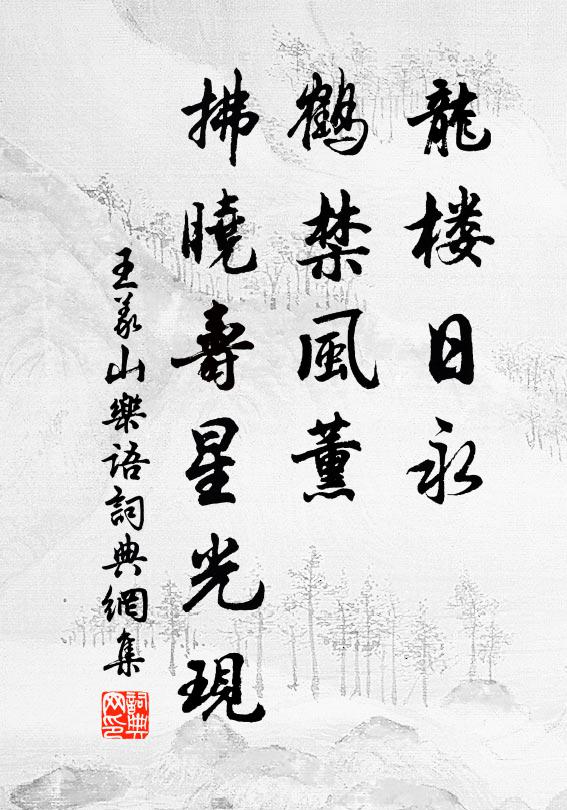 龍楼日永
鶴禁風薰
拂曉壽星光現
王义山樂语詞典網集
詞典网印